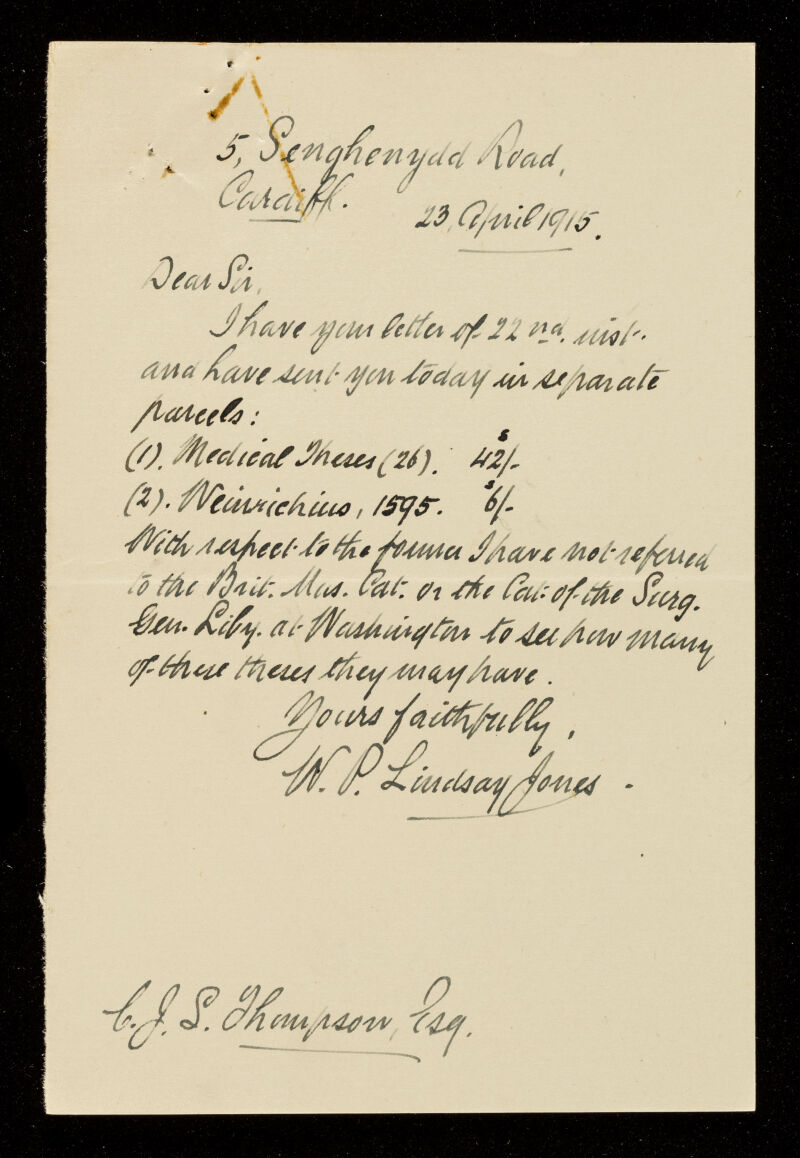 5, Senghenydd Road,
Cardiff.
23, April 1915.
Dear Sir,
I have your letter of 22nd. inst.
and have sent you today in separate
parcels:
(1). Medical Theses (26). 42s/-
(2). Weinrichius, 1595. 6s/-
With respect to the former I have not referred
to the Brit. Mus. Cat. or the Cat. of the Surg.
Gen. Liby. at Washington to see how many
of these theses they may have.
Yours faithfully,
W. P. Lindsay Jones -
C. J. S. Thompson, Esq.